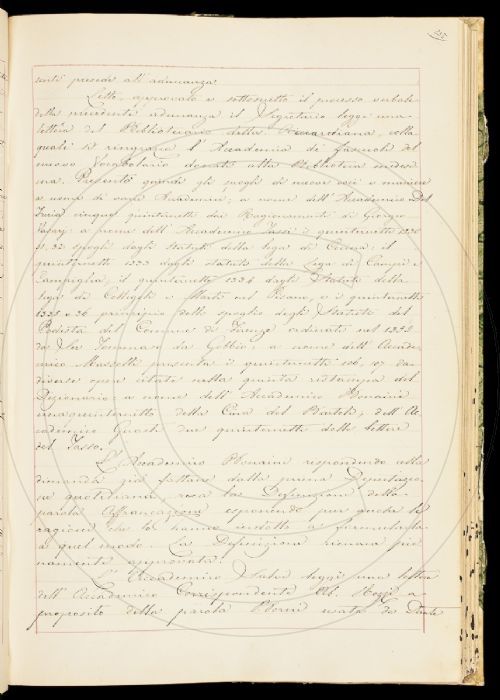 senti presiede all'adunanza.
Letto, approvato e sottoscritto il processo verbale
della precedente adunanza il Segretario legge una
lettera del Bibliotecario della Riccardiana, colla
quale si ringrazia l'Accademia de' fascicoli del
nuovo Vocabolario donati alla Biblioteca medesi
ma. Presenta quindi gli spogli di nuove voci e maniere
a nome di varii Accademici; a nome dell'Accademico Del
Furia cinque quinternetti dei Ragionamenti di Giorgio
Vasari; a nome dell'Accademico i quinternetti
31, 32 spogli dagli Statuti della lega di il
quinternetto 1333 dagli statuti della Lega di Campi e
il quinternetto 1334 dagli Statuti della
lega di Collegalli e Marti nel Pisano, e i quinternetti
1335 e 36 principio dello spoglio degli Statuti del
Potestà del Comune di Firenze ordinati nel
da Ser Tommaso da Gobbio; a nome dell'Accade
mico Masselli presenta i quinternetti 106, 107 da
diverse opere citate nella quinta ristampa del
Dizionario a nome dell'Accademico
una quinternetto della Cina del Bartoli; dell'Ac
cademico Guasti due quinternetti dalle lettere
del Tasso.
L'Accademico Bonaini rispondendo alla
dimanda già fattane dalla prima Deputazio
ne quotidiana, resa la Definizione della
parola Affrancazione esponendo pur anche le
ragioni che lo hanno indotto a formularla
a quel modo. La Definizione rimane pie
namente approvata.
L'Accademico legge una lettera
dell'Accademico Corrispondente Ab. a
proposito della parola usata da Dante